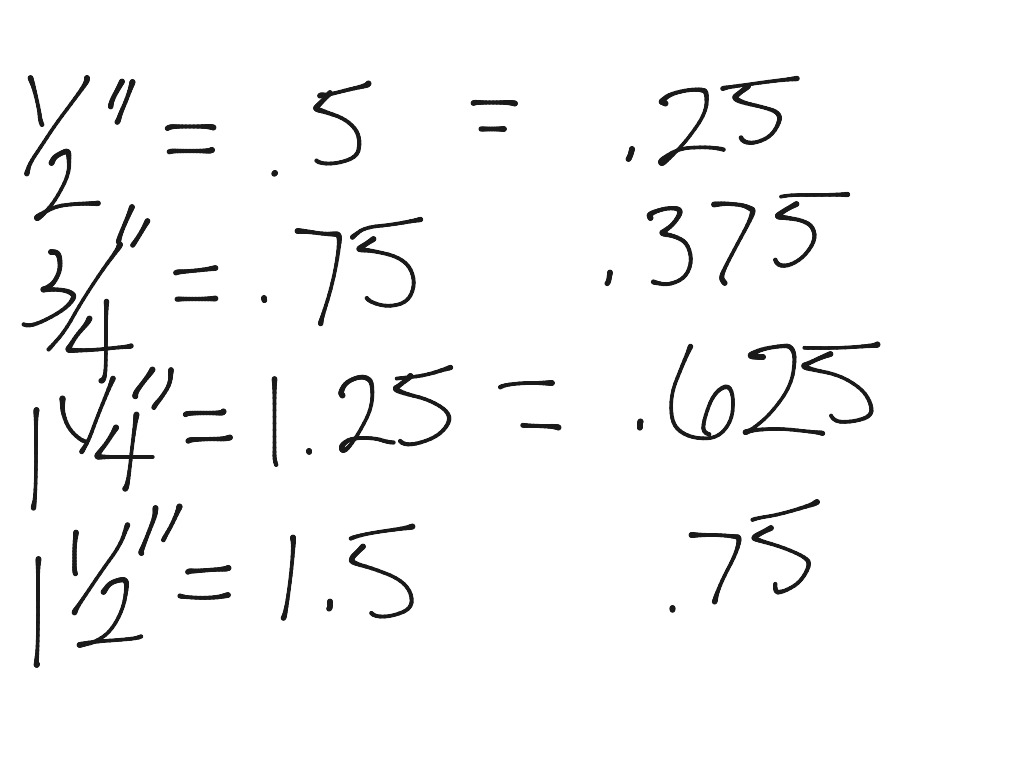 1/2" = .5 = .25
3/4" = .75 .375
1 1/4" = 1.25 = .625
1 1/2" = 1.5 .75